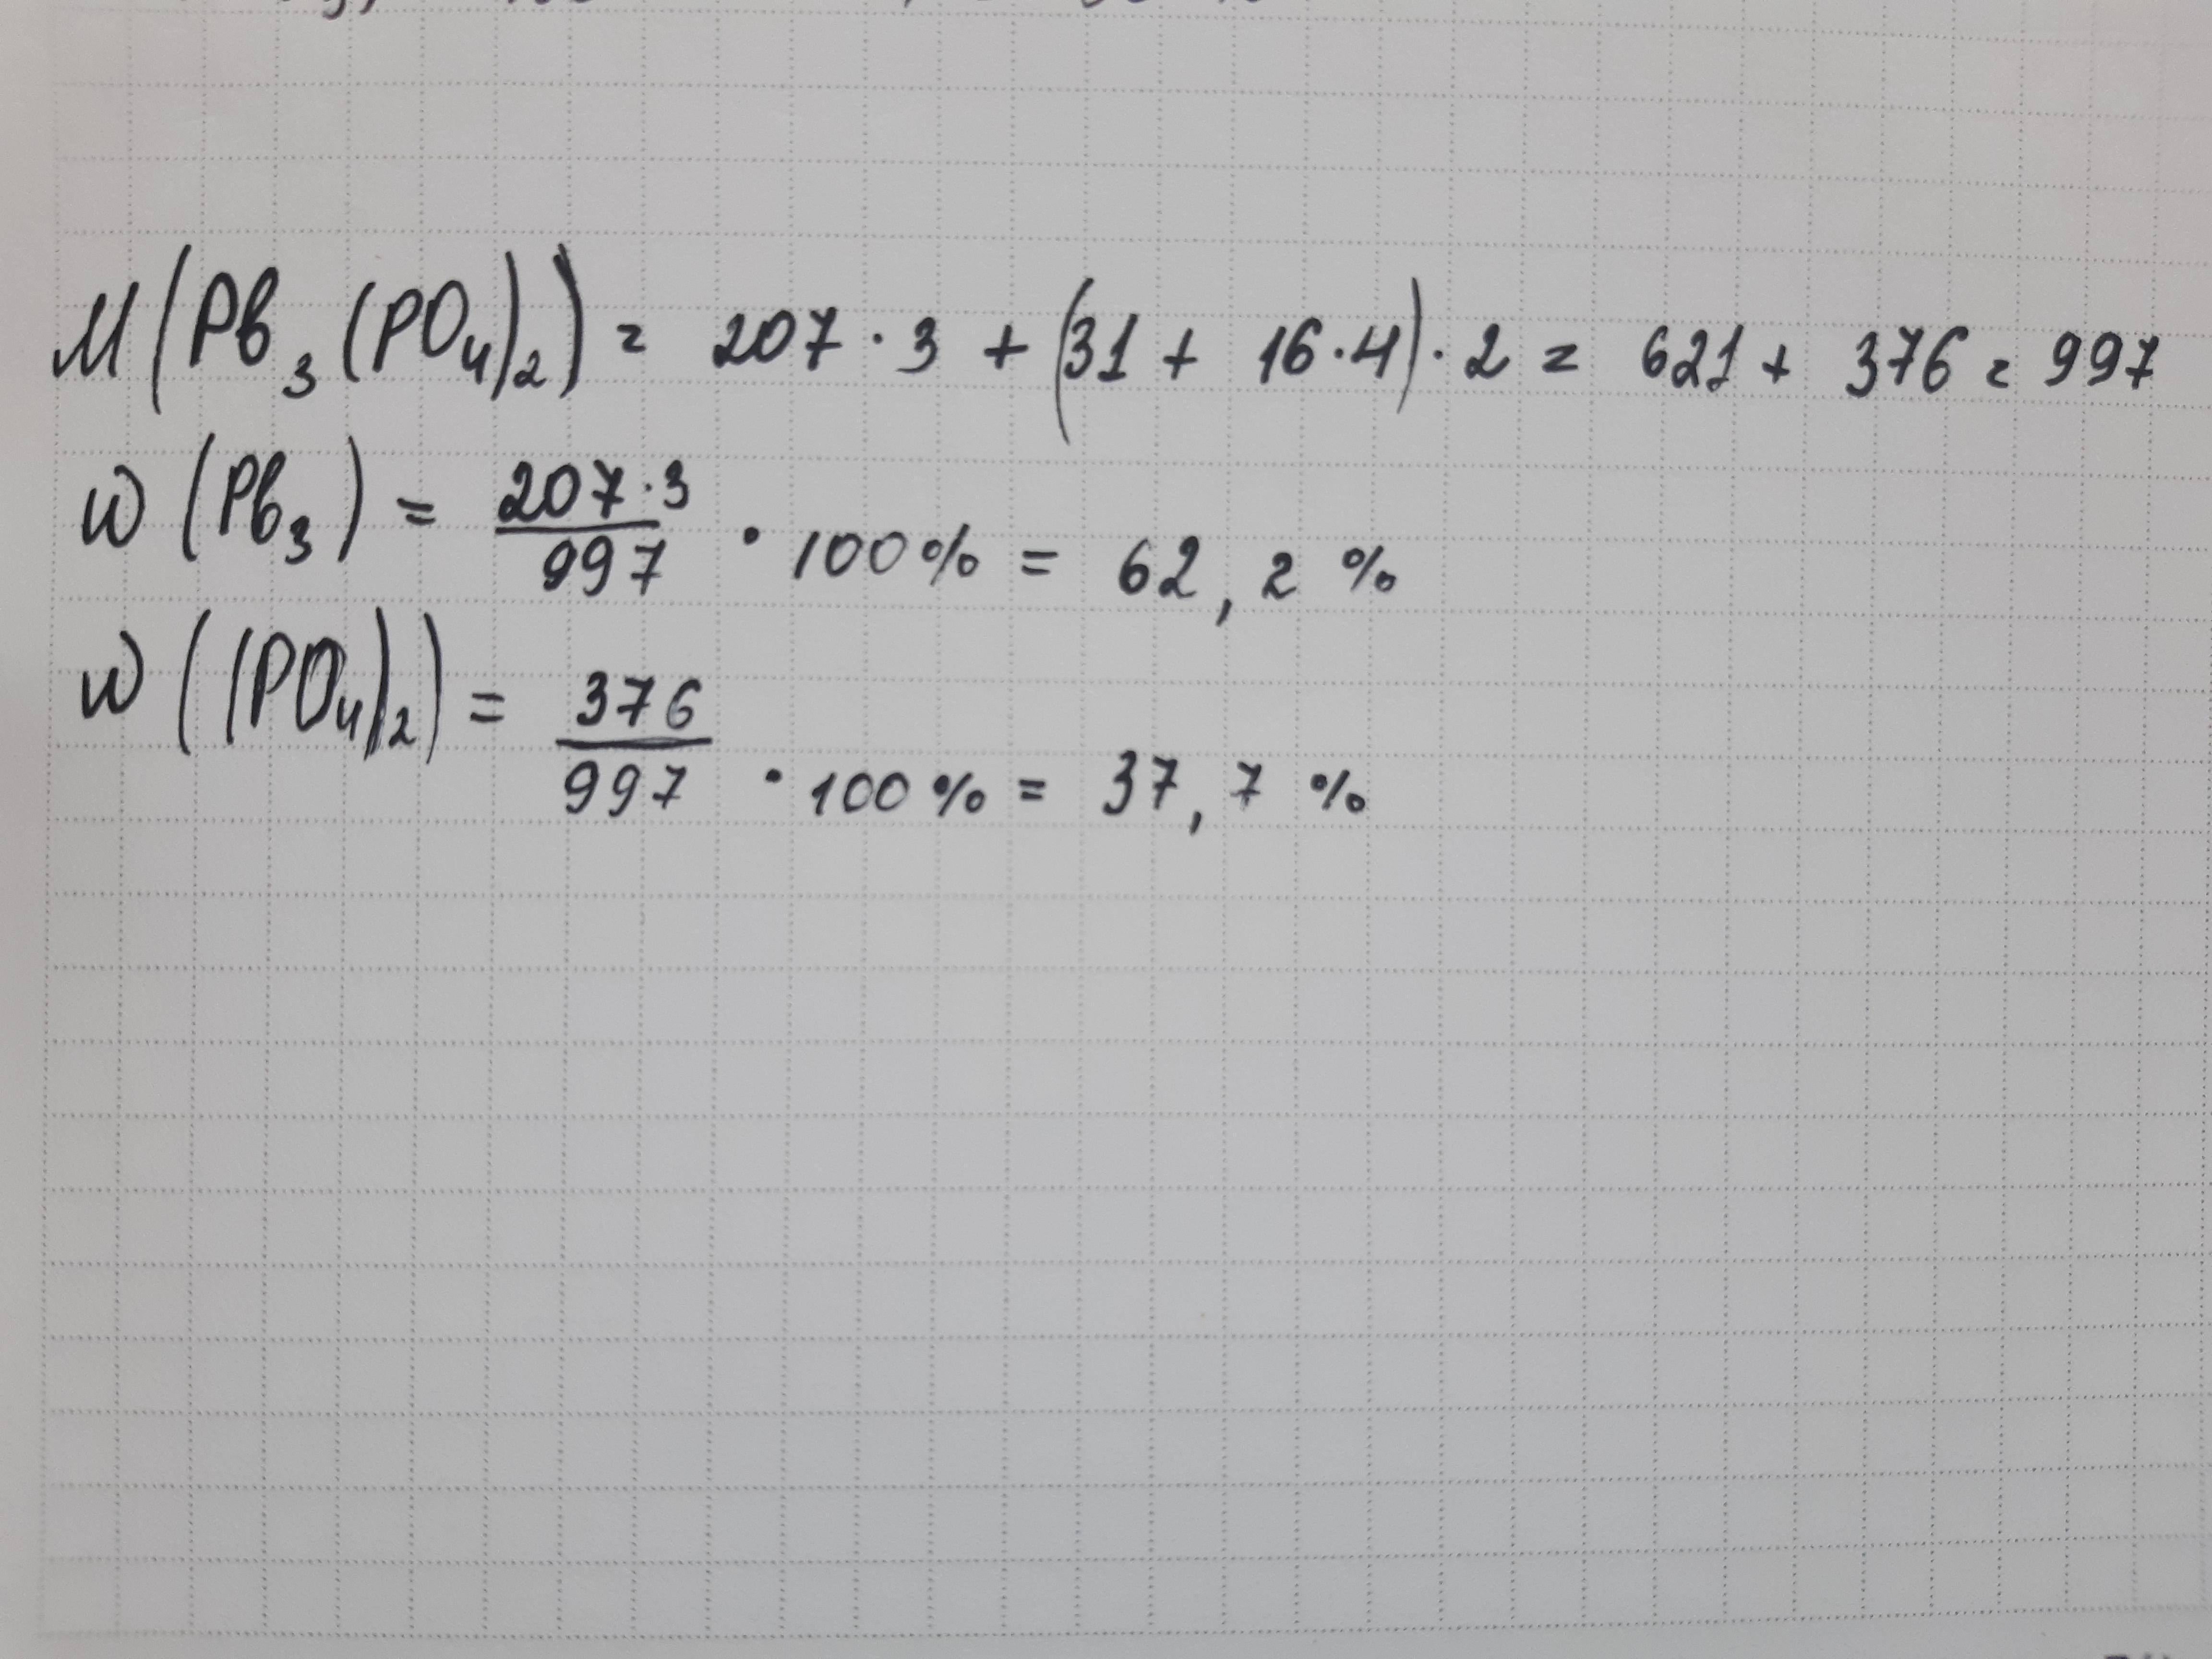 M(Pb₃(PO₄)₂) = 207 · 3 + (31 + 16 · 4) · 2 = 621 + 376 = 997
W(Pb₃) = 207 · 3 / 997 · 100 % = 62,2 %
W((PO₄)₂) = 376 / 997 · 100 % = 37,7 %